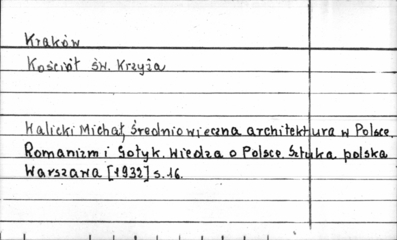 Kraków
Kościół św. Krzyża
Walicki Michał, Średniowieczna architektura w Polsce.
Romanizm i Gotyk. Wiedza o Polsce. Sztuka polska
Warszawa [1932] s. 16.